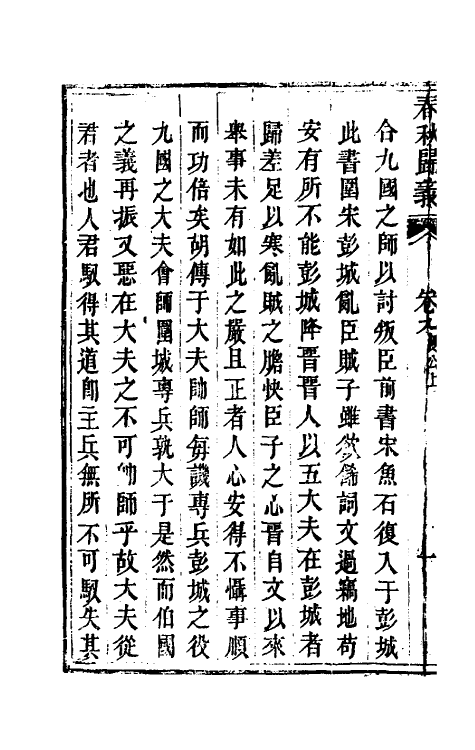 春秋歸義 卷九 襄公上
合九國之師以討叛臣前書宋魚石復入于彭城
此書圍宋彭城亂臣賊子雖欲飾詞文過竊地苟
安有所不能彭城降晉晉人以五大夫在彭城者
歸差足以寒亂賊之膽快臣子之心晉自文以來
舉事未有如此之嚴且正者人心安得不懾事順
而功倍矣胡傳于大夫帥師每譏專兵彭城之役
九國之大夫會師圍城專兵孰大于是然而伯國
之義再振又惡在大夫之不可帥師乎故大夫從
君者也人君馭得其道卽主兵無所不可馭失其